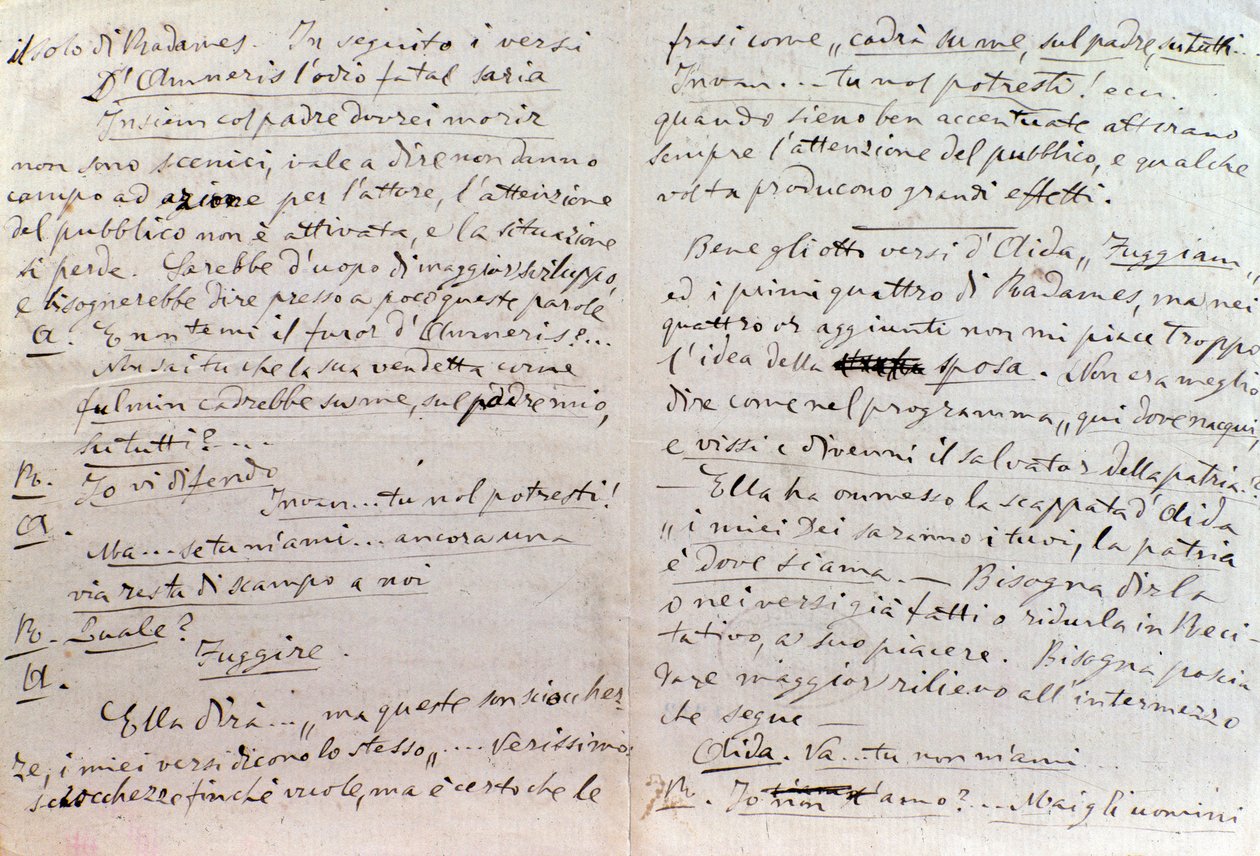 il solo di Radames. In seguito i versi
D'Amneris l'odio fatal saria
Insiem col padre dovrei morir
non sono scenici, vale a dire non danno
campo ad azione per l'attore, l'attenzione
del pubblico non è attivata, e la situazione
si perde. Sarebbe d'uopo di maggior sviluppo,
e bisognerebbe dire presso a poco queste parole
A. E non temi il furor d'Amneris?...
Non sai tu che la sua vendetta come
fulmin cadrebbe su me, sul padre mio,
su tutti?....
R. Io vi difendo
A. Invan... tu nol potresti!
Ma... se tu m'ami... ancora una
via resta di scampo a noi
R. Quale?
A. Fuggire.
Ella dirà... „ma queste son sciocchez-
ze, i miei versi dicono lo stesso„.... Verissimo:
sciocchezze finchè vuole, ma è certo che le
frasi come „cadrà su me, sul padre, su tutti...
Invan.... tu nol potresti! ecc.
quando sieno ben accentuate attirano
sempre l'attenzione del pubblico, e qualche
volta producono grandi effetti.
Bene gli otto versi d'Aida „Fuggiam„
ed i primi quattro di Radames, ma nei
quattro aggiunti non mi piace troppo
l'idea della sposa. Non era meglio
dire come nel programma „qui dove nacqui,
e vissi e divenni il salvator della patria.
— Ella ha ommesso la scappata d'Aida
„i miei Dei saranno i tuoi, la patria
è dove si ama. — Bisogna dirla
o nei versi già fatti o ridurla in Reci
tativo, a suo piacere. Bisogna poscia
dare maggior rilievo all'intermezzo
che segue —
Aida. Va... tu non m'ami...
R. Io non t'amo?... Mai gli uomini